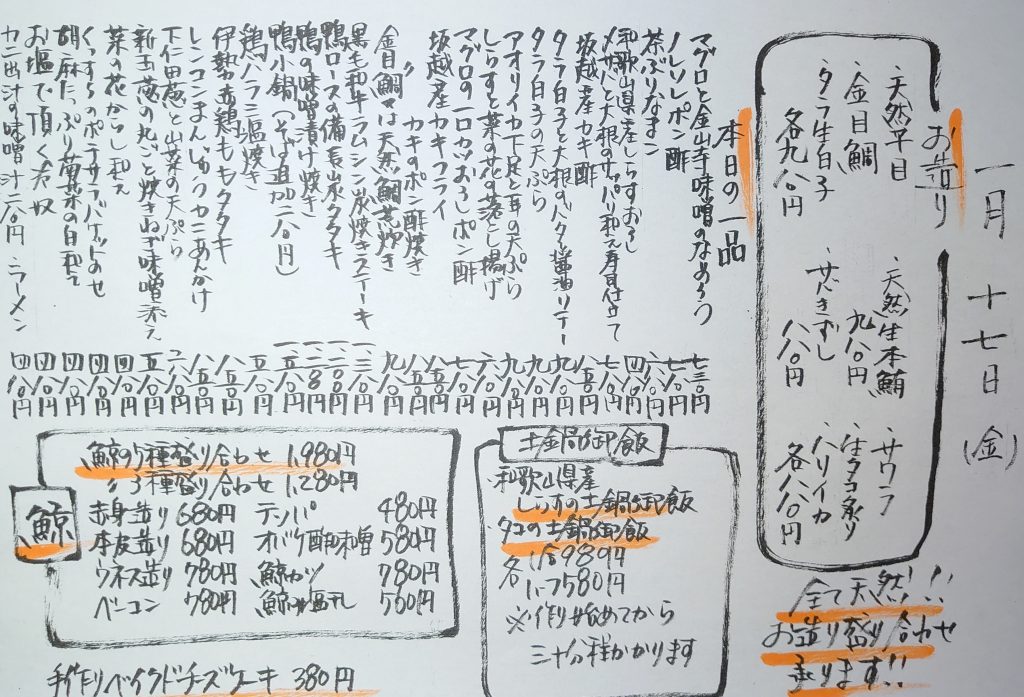 一月十七日(金)
お造り
・天然平目
・金目鯛
・タラ生白子
各九八〇円
・天然生本鮪
九八〇円
・サバきずし
八八〇円
・サワラ
・生タコ炙り
・ハリイカ
各八八〇円
全て天然!!
お造り盛り合わせ
承ります!!
本日の一品
マグロと金山寺味噌のなめろう 七三〇円
ノレソレポン酢 七八〇円
茶ぶりなまこ 六八〇円
和歌山県産しらすおろし 四八〇円
〆サバと大根のサッパリ和え寿司仕立て 七八〇円
坂越産カキ酢 八五〇円
タラ白子と大根のバター醤油ソテー 九八〇円
タラ白子の天ぷら 九八〇円
アオリイカ下足と耳の天ぷら 九八〇円
しらすと菜の花の落とし揚げ 六八〇円
マグロの一口カツおろしポン酢 七八〇円
坂越産カキフライ 八八〇円
〃 カキのポン酢焼き 八五〇円
金目鯛又は天然鯛荒炊き 九八〇円
黒毛和牛ラムシン炭焼きステーキ 一、三八〇円
鴨ロースの備長炭タタキ
鴨の味噌漬け焼き
鴨小鍋(そば追加二八〇円)
鶏ハラミ塩焼き 五八〇円
伊勢赤鶏ももタタキ 八五〇円
レンコンまんじゅうカニあんかけ 八五〇円
下仁田葱と山菜の天ぷら
新玉葱の丸ごと焼きねぎ味噌添え 五八〇円
菜の花からし和え 四八〇円
くっすらのポテサラバケットのせ 四八〇円
胡麻たっぷり菊菜の白和え 四八〇円
お塩で頂く冷奴 四八〇円
カニ出汁の味噌汁二八〇円 ラーメン 四八〇円
土鍋御飯
・和歌山県産
しらすの土鍋御飯
・タコの土鍋御飯
各 1合980円
1.5合1,580円
※作り始めてから
三十分程かかります
鯨
鯨の5種盛り合わせ 1,980円
〃 3種盛り合わせ 1,280円
赤身造り 680円 テンパ 480円
本皮造り 680円 オバケ酢味噌 580円
ウネス造り 780円 鯨カツ 780円
ベーコン 780円 鯨の塩干し 500円
手作りベイクドチーズケーキ 380円